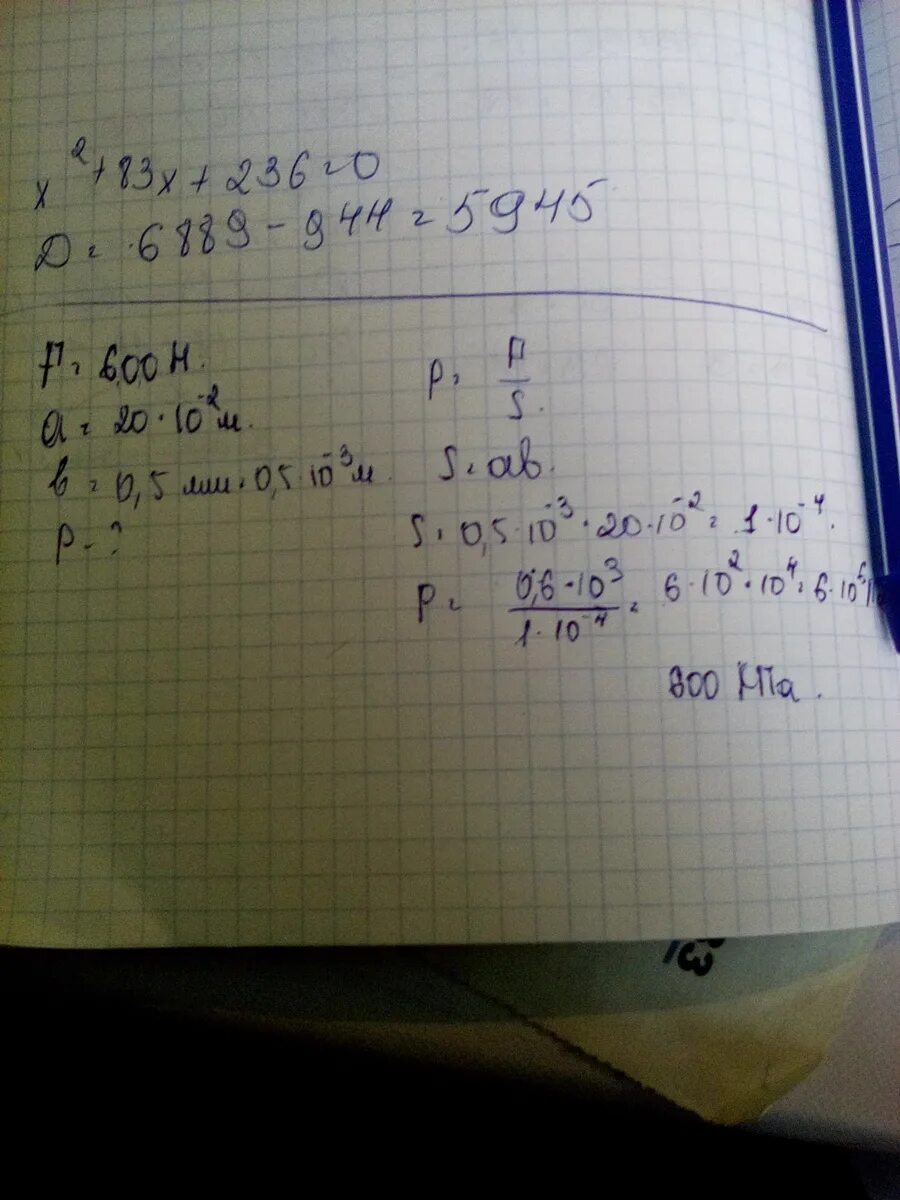 x² + 83x + 236 = 0
D = 6889 - 944 = 5945
F = 600 Н.
a = 20 · 10⁻² м.
b = 0,5 мм = 0,5 · 10⁻³ м.
P - ?
P = F / S.
S = ab.
S = 0,5 · 10⁻³ · 20 · 10⁻² = 1 · 10⁻⁴.
P = 0,6 · 10³ / 1 · 10⁻⁴ = 6 · 10² · 10⁴ = 6 · 10⁶
МПа.